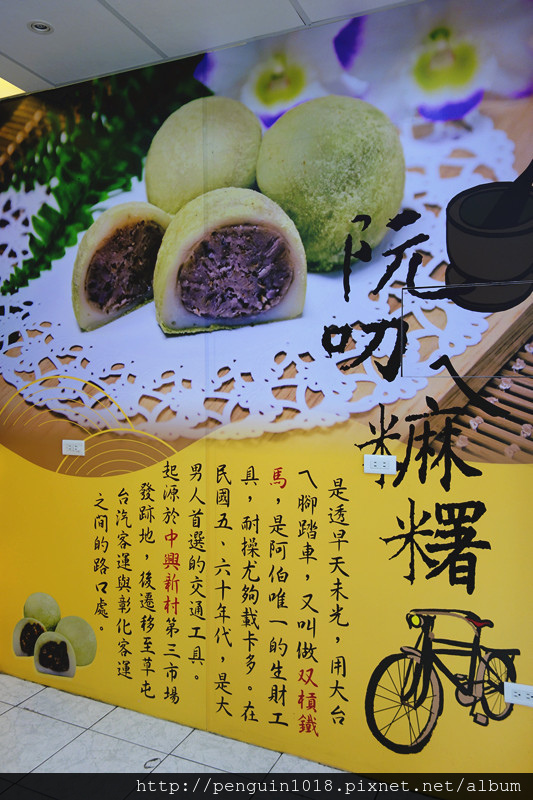 阮叨ㄟ麻糬
是透早天未光，用大台
ㄟ腳踏車，又叫做双槓鐵
馬，是阿伯唯一的生財工
具，耐操尤夠載卡多。在
民國五、六十年代，是大
男人首選的交通工具。
起源於中興新村第三市場
發跡地，後遷移至草屯
台汽客運與彰化客運
之間的路口處。
http://penguin1018.pixnet.net/album